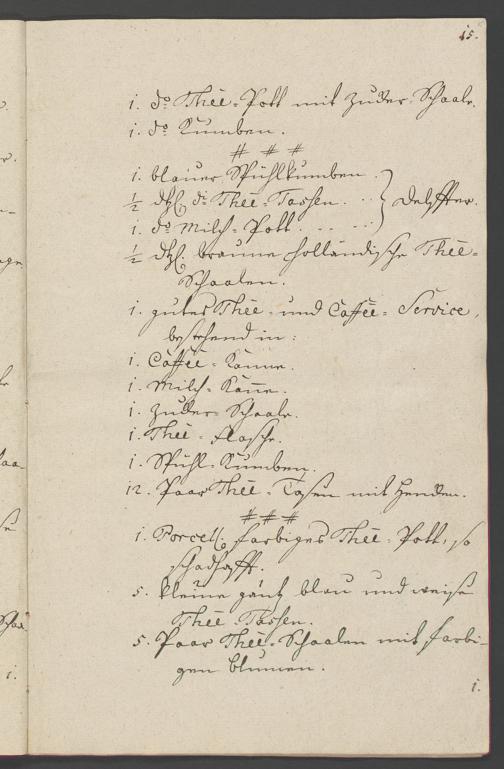 15.
1. do Theé-Pott mit Zucker-Schaale.
1. do Kumben.
# # #
1. blauer Spühlkumben
½ dtzl. di Theé-Tassen. . . } Delffter.
1. do Milch-Pott. . . . .
½ dtzl. braune holländische Theé-
Schaalen.
1. gutes Theé- und Caffeé-Service,
bestehend in:
1. Caffeé-Kanne.
1. Milch-Kañe.
1. Zucker-Schaale.
1. Theé-Flasche.
1. Spühl-Kumben.
12. Paar Theé-Tasen mit Henden.
# # #
1. Porcell: farbiges Theé-Pott, so
schadhafft.
5. kleine gantz blau und weise
Theé-Tassen.
5. Paar Theé-Schaalen mit farbi-
gen blumen.
1.